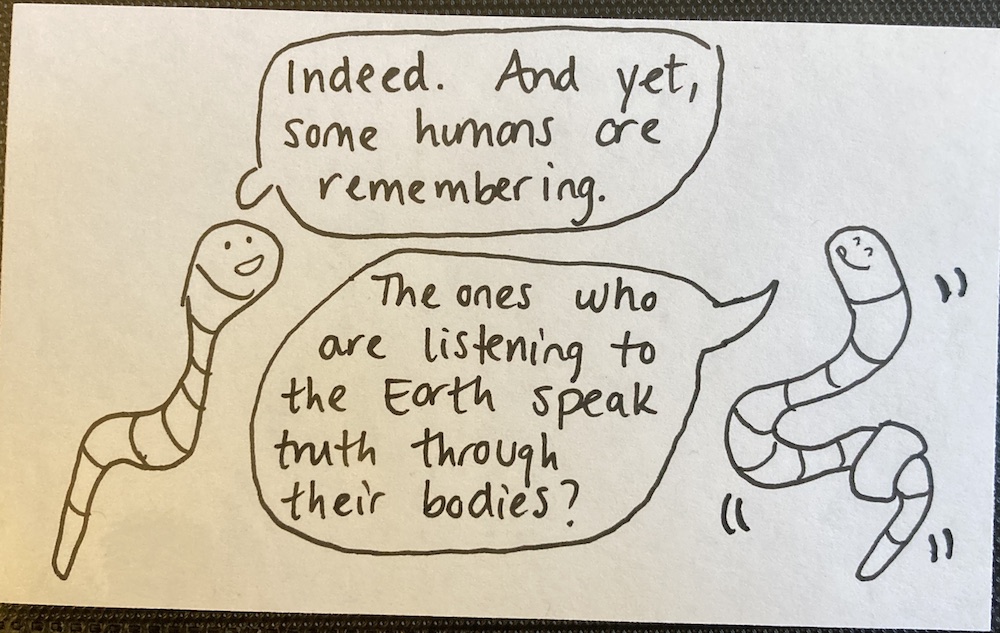 Indeed. And yet,
some humans are
remembering.
The ones who
are listening to
the Earth speak
truth through
their bodies?